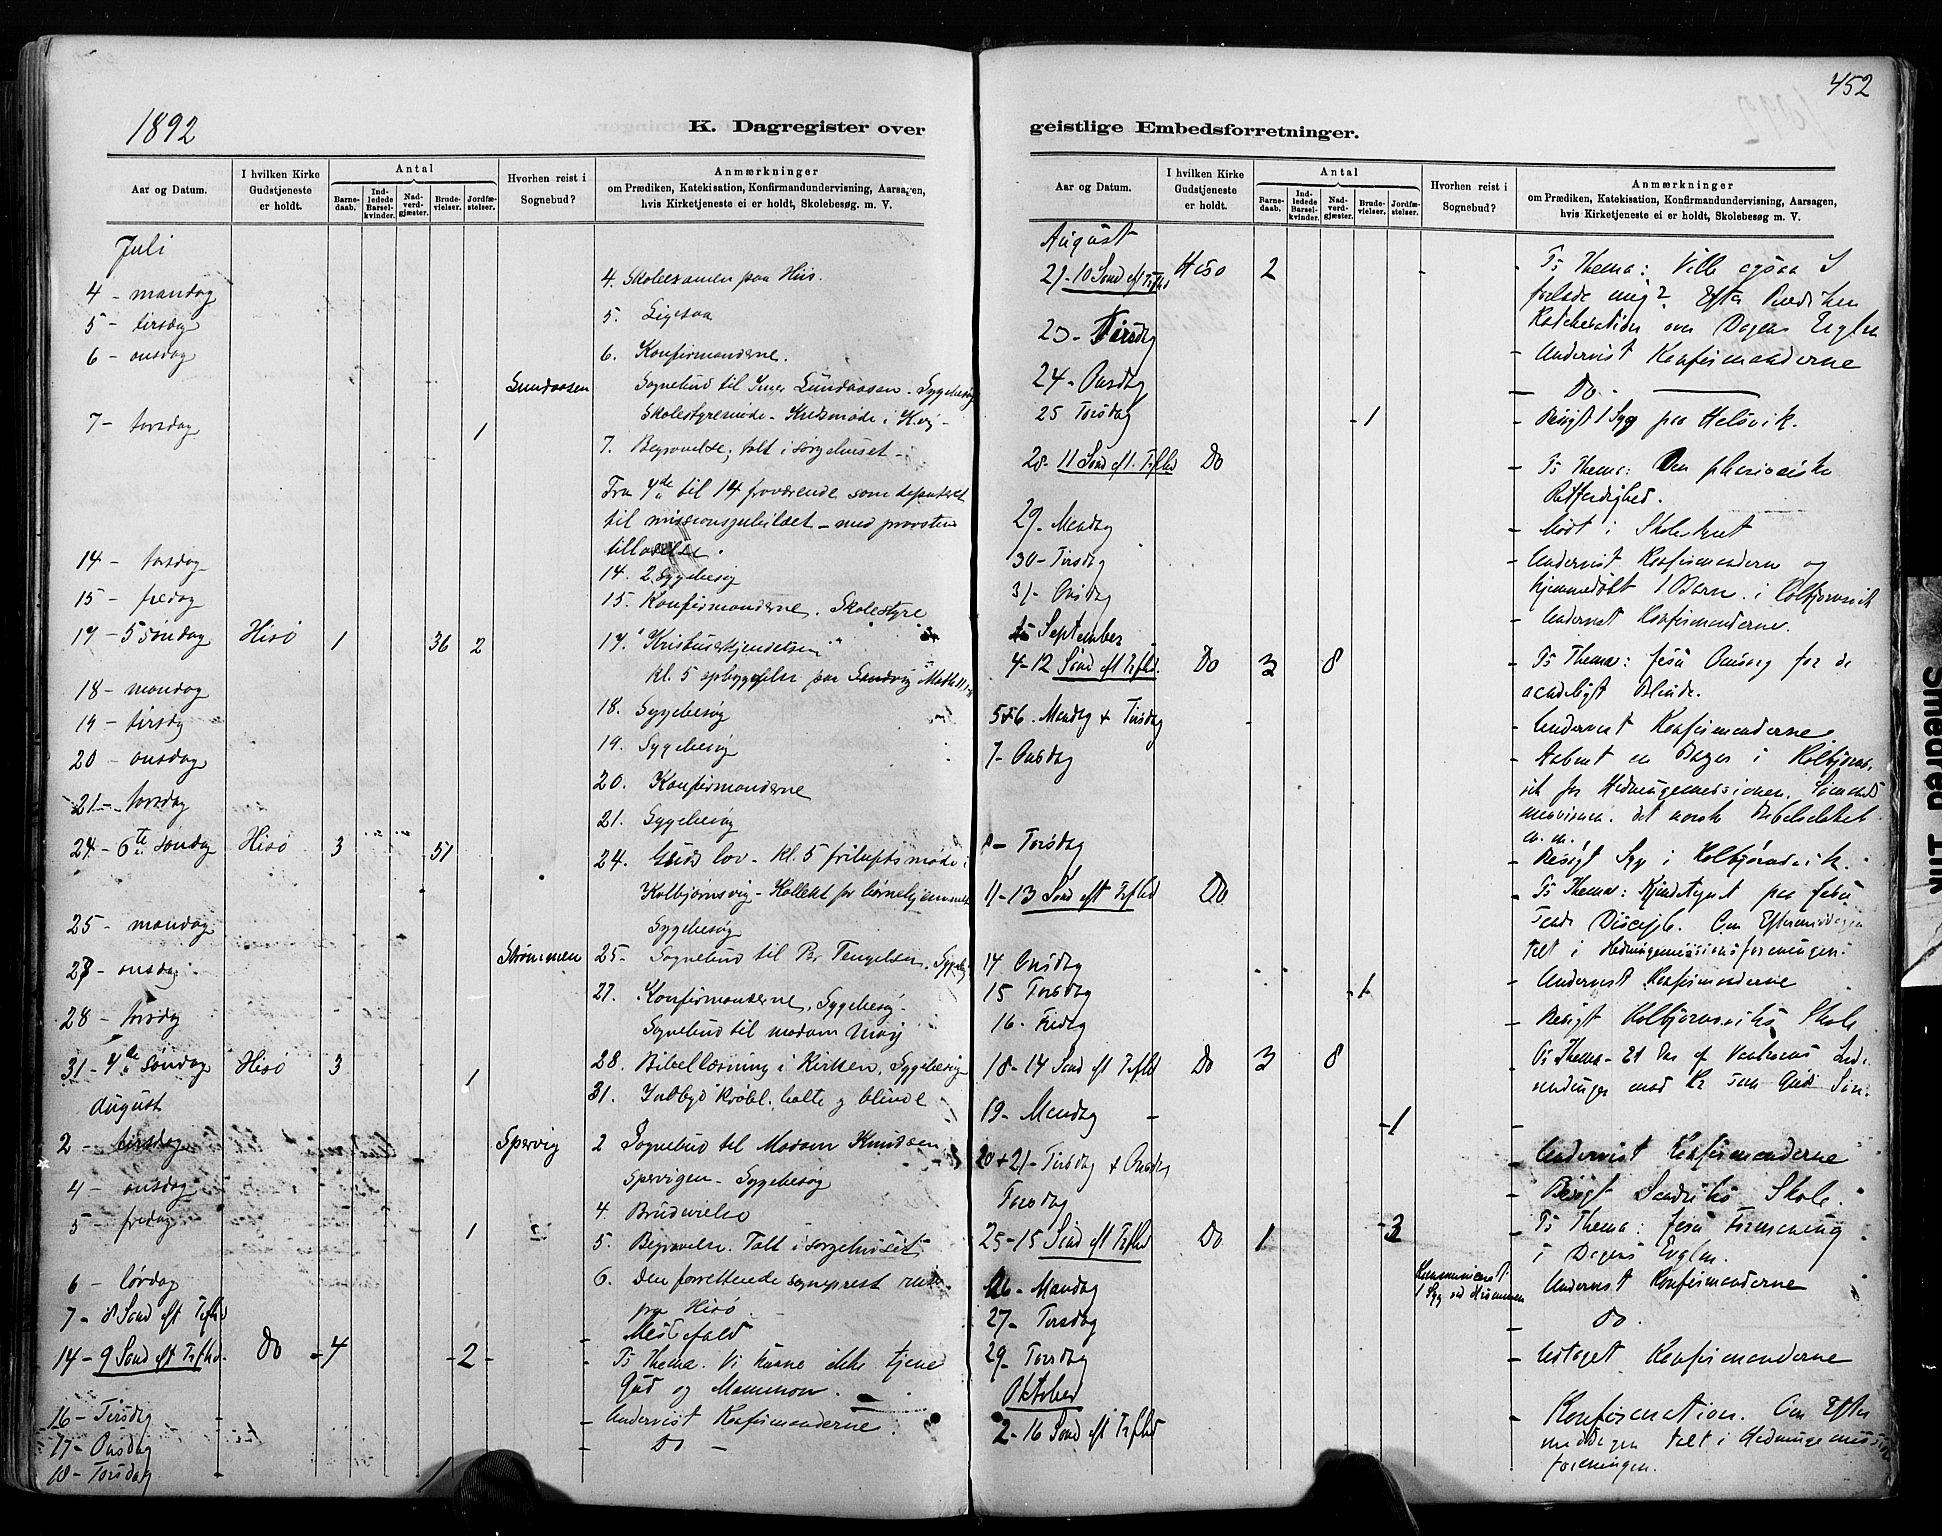 1892
K. Dagregister over
Aar og Datum.
I hvilken Kirke Gudstjeneste er holdt.
Antal
Barnedaab.
Indledede Barselkvinder.
Nadverdgjæster.
Brudevielser.
Jordfæstelser.
Hvorhen reist i Sognebud?
Anmærkninger
om Prædiken, Katekisation, Konfirmandundervisning, Aarsagen,
hvis Kirketjeneste ei er holdt, Skolebesøg. m. V.
Juli
4 - mandag 4. Skoleexamen paa His.
5 - tirsdag 5. Ligesaa
6 - onsdag 6. Konfirmanderne.
Lundaasen Sognebud til Lundaasen. Sygebesøg
Skolestyremøde - Kredsmøde i
7 - torsdag 1
7. Begravelse; talt i sørgehuset
Fra 7de til 14 fraværende som deputeret
til missionsjubilæet - med provstens
tilladelse.
14 - torsdag 14. 2 Sygebesøg
15 - fredag 15. Konfirmanderne. Skolestyre
17 - 5 søndag Hisø 1 36 2 17. "Kristuserkjendelsen"
kl. 5 opbyggelse paa Sandvig
18 - mandag 18. Sygebesøg
19 - tirsdag 19. Sygebesøg
20 - onsdag 20. Konfirmanderne
21 - torsdag 21. Sygebesøg
24 - 6te søndag Hisø 3 51 24. Guds lov - kl. 5 friluftsmøde i
Kolbjørnsvig - Kollekt for
Sygebesøg
25 - mandag Strømmen 25. Sognebud til Tengelsen. Sygebesøg
27 - onsdag 27. Konfirmanderne, Sygebesøg
Sognebud til madam
28 - torsdag 28. Bibellæsning i Kirken, Sygebesøg
31 - 7de søndag Hisø 3 1 31. Indbyd krøbl. halte og blinde
August
2 - tirsdag Spervig 2 Sognebud til Madam Knudsen
Spervigen - Sygebesøg
4 - onsdag 4. Brudevielse
5 - fredag 1 5. Begravelse. Talt i sørgehuset
6 - lørdag 6. Den forrettende sogneprest reiste
fra Hisø.
7 - 8 Sønd eft Trefhd Messefald
14 - 9 Sønd eft Trefhd. Do - 4 - 2 - Ts Thema. Vi kunne ikke tjene
Gud og Mammon.
16 - Tirsdag Undervist Konfirmanderne.
17 - Onsdag - Do -
18 - Torsdag
452
geistlige Embedsforretninger.
Aar og Datum.
I hvilken Kirke Gudstjeneste er holdt.
Antal
Barnedaab.
Indledede Barselkvinder.
Nadverdgjæster.
Brudevielser.
Jordfæstelser.
Hvorhen reist i Sognebud?
Anmærkninger
om Prædiken, Katekisation, Konfirmandundervisning, Aarsagen,
hvis Kirketjeneste ei er holdt, Skolebesøg m. V.
August
21 - 10 Sønd eft Trefhd Hisø 2 - Ts Thema: Ville ogsaa I
forlade mig? Efter Prædiken
Katekisation over Dagens Evglm
23 - Tirsdag - Undervist Konfirmanderne
24 - Onsdag - Do -
25 Torsdag - 1 - Besøgt 1 Syg paa Helsvik.
28 - 11 Sønd eft. Trefhd Do - Ts Thema: Den phariseiske
Retfærdighed.
29 - Mandag - Mødt i Skolestyret
30 - Tirsdag - Undervist Konfirmanderne og
hjemmedøbt 1 Barn i Kolbjørnsvik
31 - Onsdag - Undervist Konfirmanderne.
September
4 - 12 Sønd eft Trefhd. Do 3 8 - Ts Thema: Jesu Omsorg for de
aandeligt Blinde.
5 & 6. Mandag + Tirsdag - Undervist Konfirmanderne.
7 - Onsdag - Aabnet en Bazar i Kolbjørns-
vik for Hedningemissionen, Sømands
missionen, det norske Bibelselskab
m. m.
8 - Torsdag - Besøgt Syg i Kolbjørnsvik.
11 - 13 Sønd eft Trefhd Do - Ts Thema: Kjendetegnet paa Jesu
sande Disciple. Om Eftermiddagen
talt i Hedningemissionsforeningen.
14 Onsdag - Undervist Konfirmanderne
15 Torsdag - 1
16 - Fredag - Besøgt Kolbjørnsviks Skole
18 - 14 Sønd eft Trefhd Do 3 8 Ts Thema - Et Par af Vantroens Ind-
vendinger mod Kr som Guds Søn.
19 - Mandag - - 1 -
20 + 21 - Tirsdag + Onsdag - Undervist Konfirmanderne
Torsdag - Besøgt Sandviks Skole.
25 - 15 Sønd eft Trefhd Do 1 - 3 - Ts Thema: Jesu Formaning
i Dagens Evglm.
26 - Mandag 1 Syg ved - Undervist Konfirmanderne
27 - Tirsdag - Do.
29 - Torsdag - Udtaget Konfirmanderne
Oktober
2 - 16 Sønd eft Trefhd - Konfirmation. Om Efter
middagen talt i Hedningemissions
foreningen.